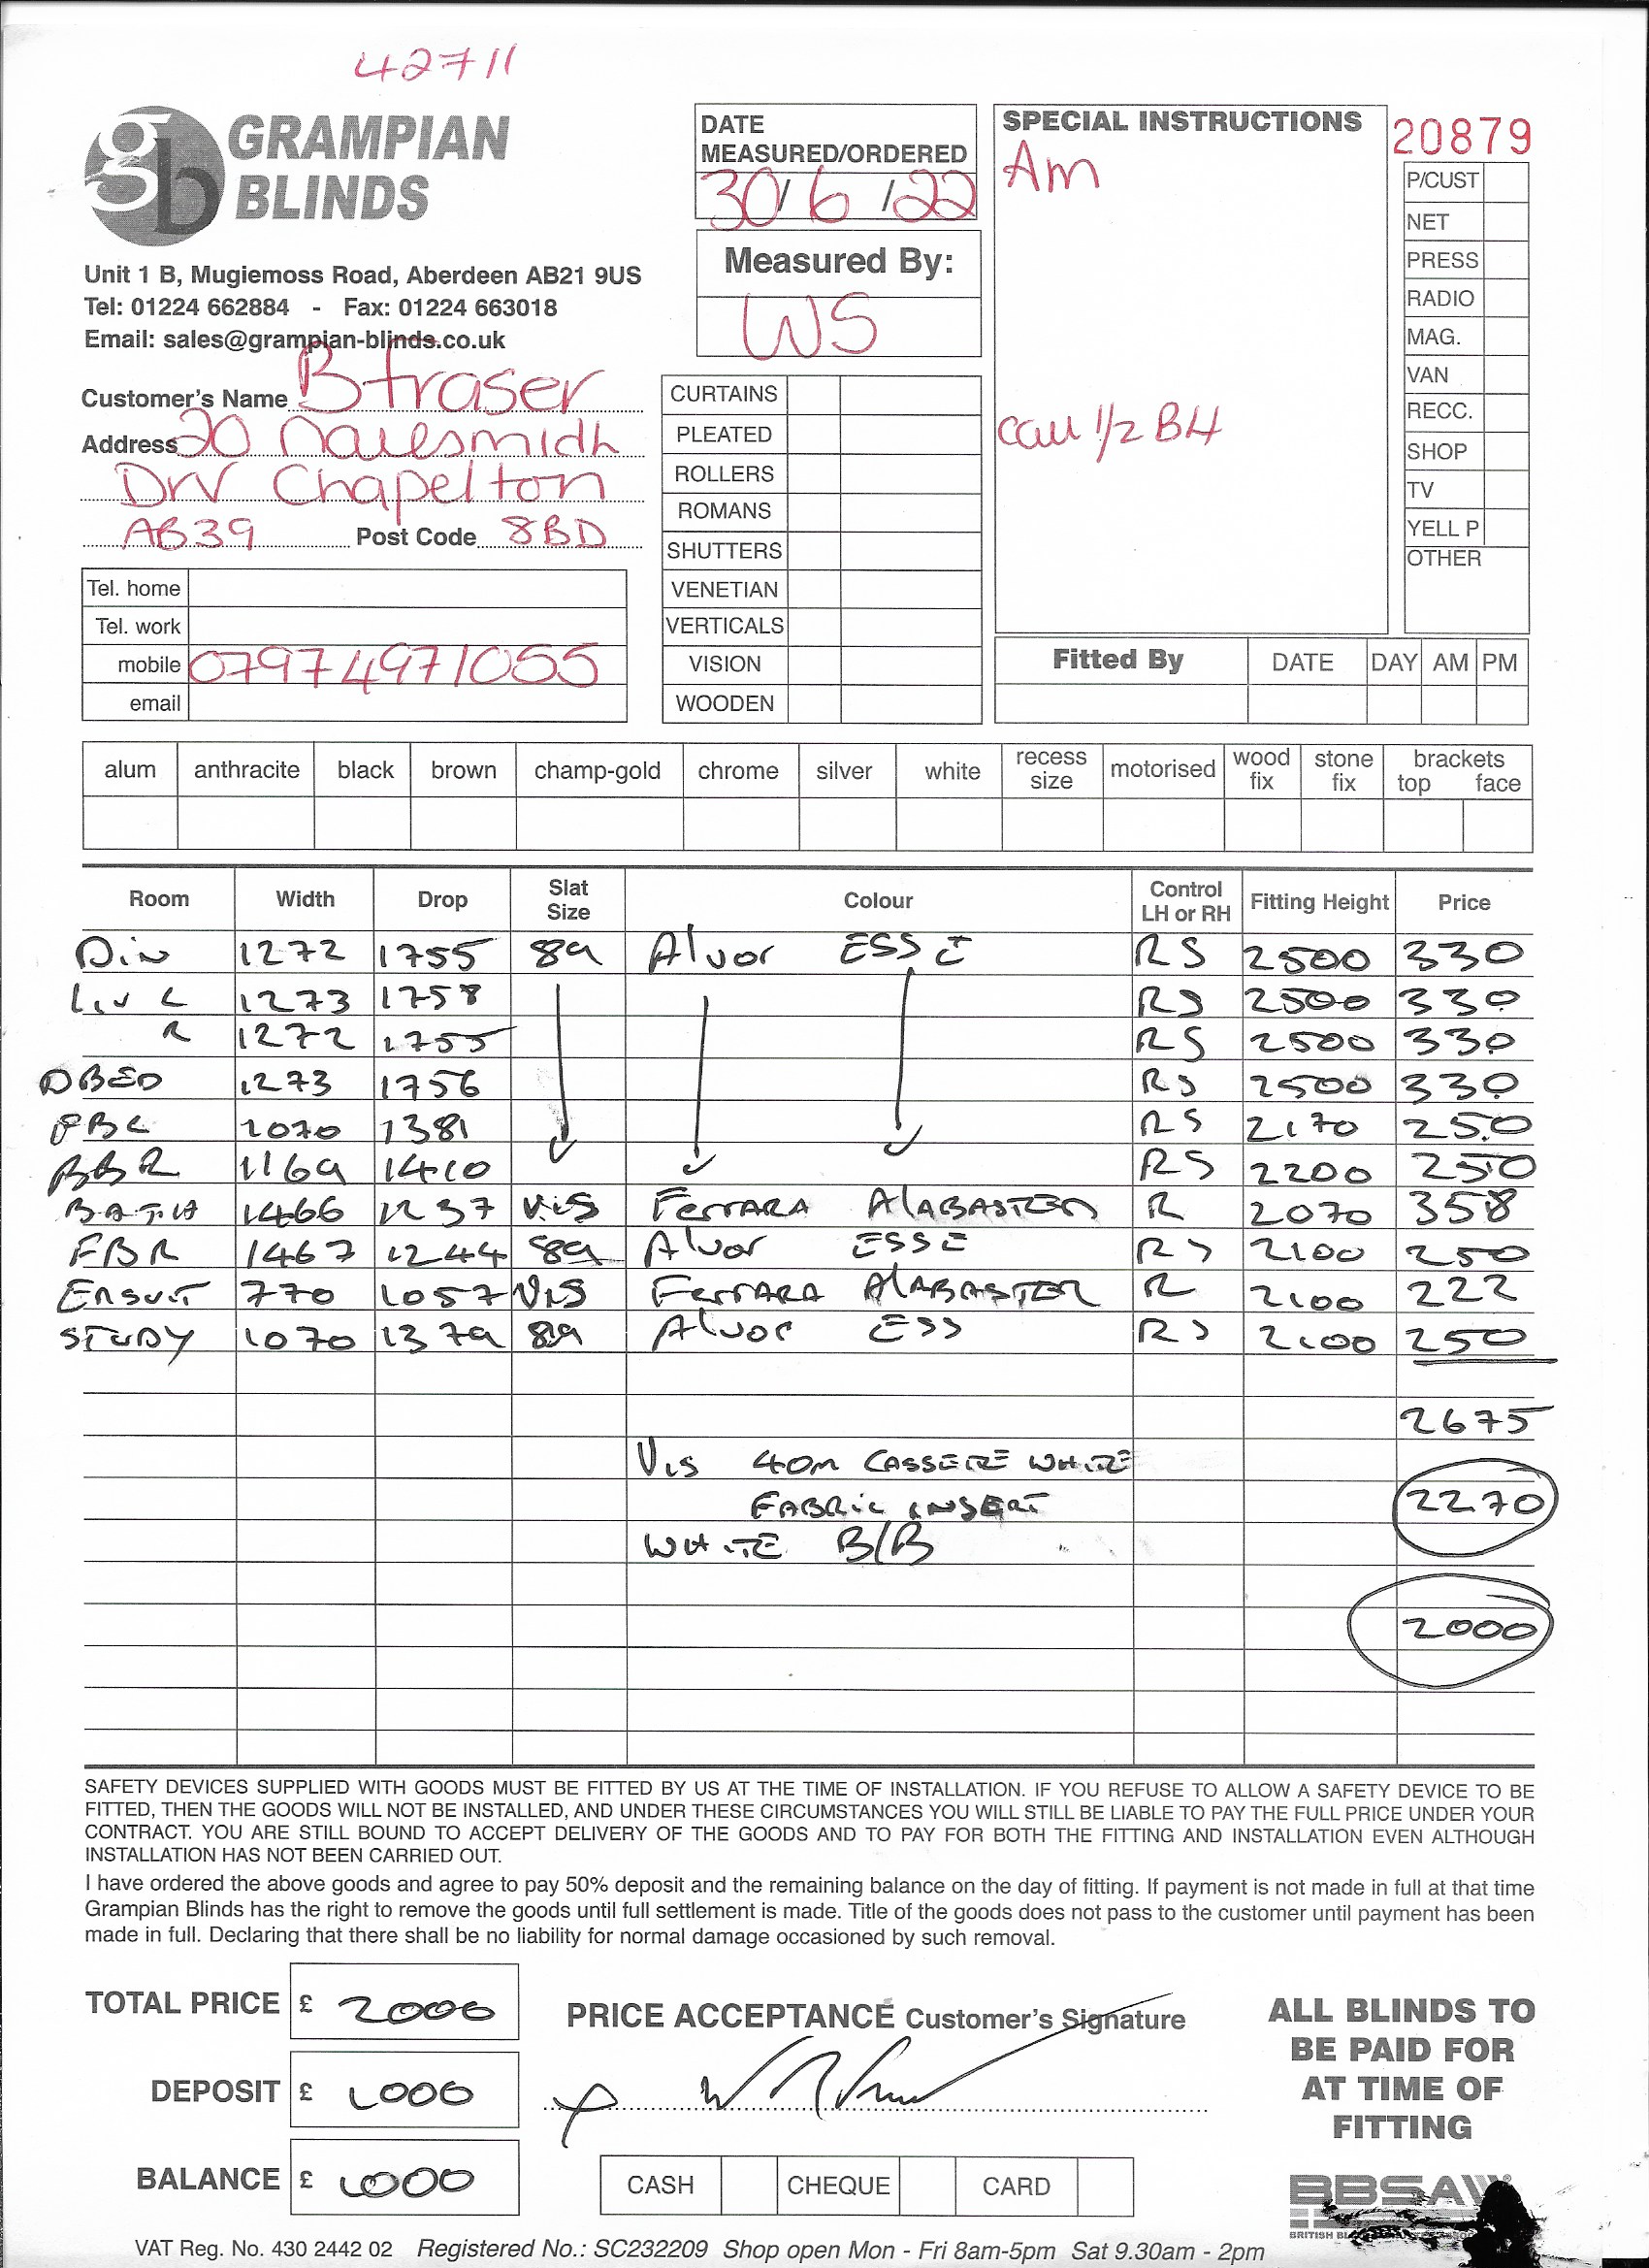 42711
GRAMPIAN
BLINDS
Unit 1 B, Mugiemoss Road, Aberdeen AB21 9US
Tel: 01224 662884 - Fax: 01224 663018
Email: sales@grampian-blinds.co.uk
Customer's Name B fraser
Address 20
Drv Chapelton
AB39 Post Code 8BD
Tel. home
Tel. work
mobile 07974971055
email
DATE
MEASURED/ORDERED
30/6/22
Measured By:
WS
CURTAINS
PLEATED
ROLLERS
ROMANS
SHUTTERS
VENETIAN
VERTICALS
VISION
WOODEN
SPECIAL INSTRUCTIONS
Am
Call 1/2 B4
20879
P/CUST
NET
PRESS
RADIO
MAG.
VAN
RECC.
SHOP
TV
YELL P
OTHER
Fitted By DATE DAY AM PM
alum anthracite black brown champ-gold chrome silver white recess size motorised wood fix stone fix brackets top face
Room Width Drop Slat Size Colour Control LH or RH Fitting Height Price
Din 1272 1755 89 Alvor ESSE RS 2500 330
Liv L 1273 1758 RS 2500 330
R 1272 1755 RS 2500 330
DBED 1273 1756 RS 2500 330
1070 1381 RS 2170 250
BBR 1169 1410 RS 2200 250
BATH 1466 1237 ViS Ferrara ALABASTER R 2070 358
FBR 1467 1244 89 Alvor ESSE RS 2100 250
ENSUIT 770 1057 ViS Ferrara ALABASTER R 2100 222
STUDY 1070 1379 89 Alvor ESS RS 2100 250
2675
Vis 40m CASSETTE WHITE
FABRIC INSERT
2270
WHITE B/B
2000
SAFETY DEVICES SUPPLIED WITH GOODS MUST BE FITTED BY US AT THE TIME OF INSTALLATION. IF YOU REFUSE TO ALLOW A SAFETY DEVICE TO BE
FITTED, THEN THE GOODS WILL NOT BE INSTALLED, AND UNDER THESE CIRCUMSTANCES YOU WILL STILL BE LIABLE TO PAY THE FULL PRICE UNDER YOUR
CONTRACT. YOU ARE STILL BOUND TO ACCEPT DELIVERY OF THE GOODS AND TO PAY FOR BOTH THE FITTING AND INSTALLATION EVEN ALTHOUGH
INSTALLATION HAS NOT BEEN CARRIED OUT.
I have ordered the above goods and agree to pay 50% deposit and the remaining balance on the day of fitting. If payment is not made in full at that time
Grampian Blinds has the right to remove the goods until full settlement is made. Title of the goods does not pass to the customer until payment has been
made in full. Declaring that there shall be no liability for normal damage occasioned by such removal.
TOTAL PRICE £ 2000
DEPOSIT £ 1000
BALANCE £ 1000
PRICE ACCEPTANCE Customer's Signature
CASH CHEQUE CARD
ALL BLINDS TO
BE PAID FOR
AT TIME OF
FITTING
BBSA
BRITISH
VAT Reg. No. 430 2442 02 Registered No.: SC232209 Shop open Mon - Fri 8am-5pm Sat 9.30am - 2pm